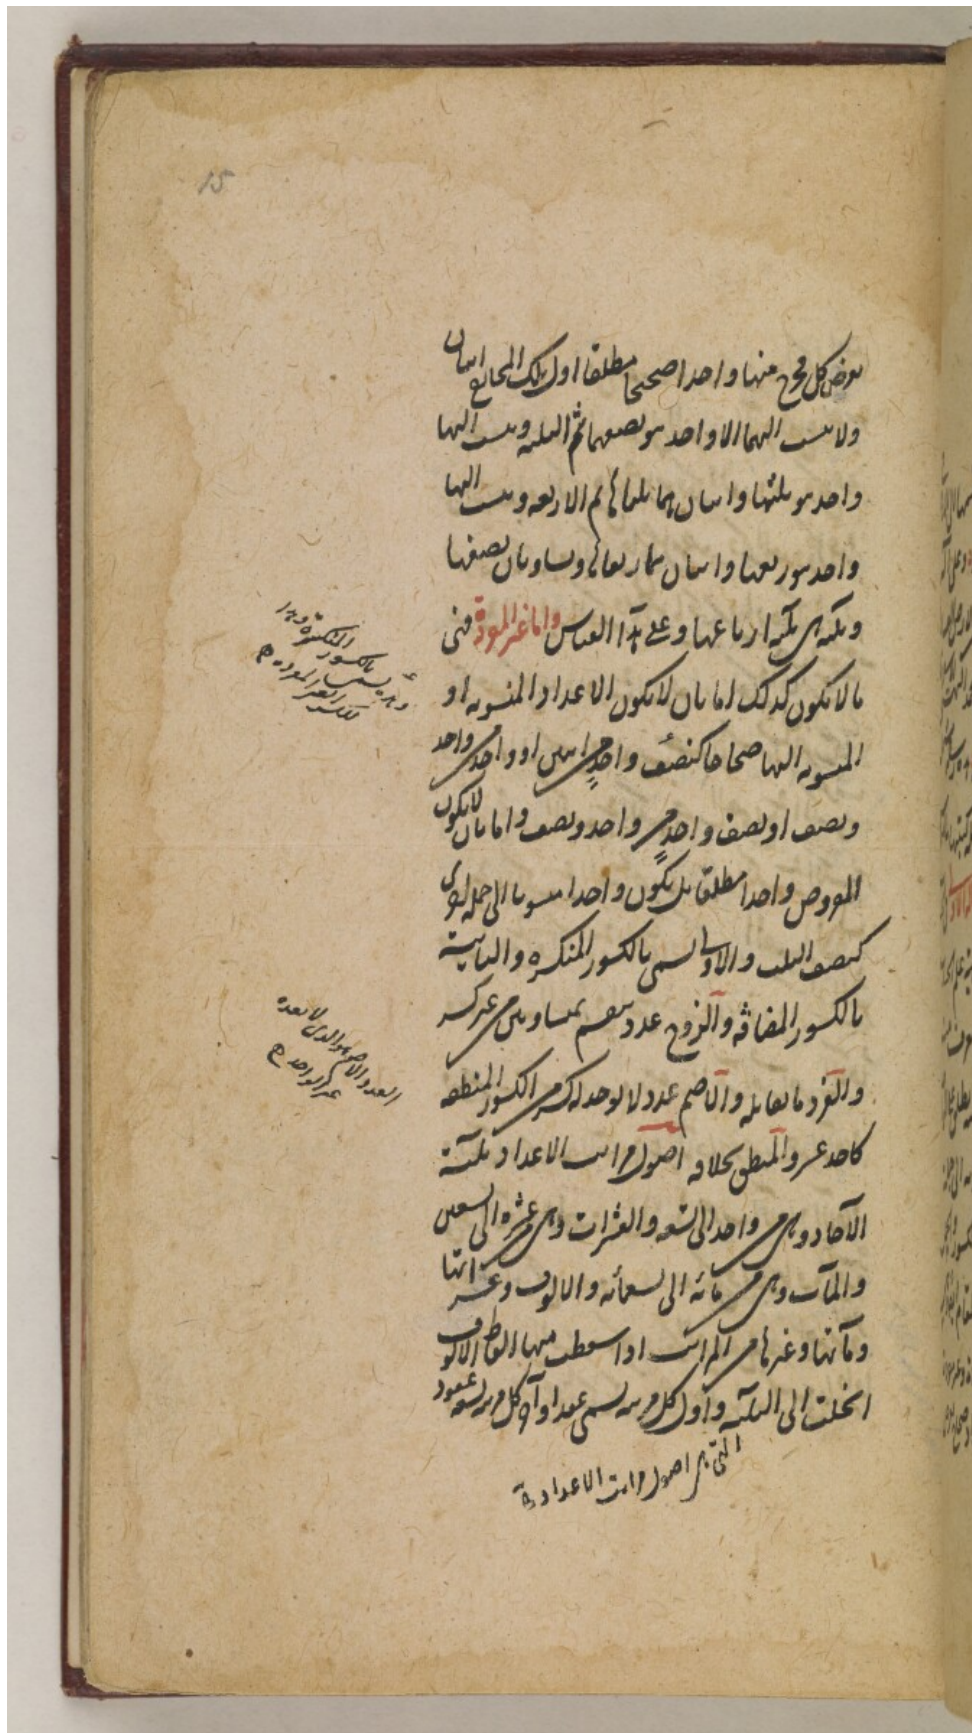 15
يعرض كل مخرج منها واحدا صحيحا مطلقا اول تلك المخارج اثنان
ولا ينسب اليهما الا واحد هو نصفهما ثم الثلثة وينسب اليها
واحد هو ثلثها واثنان هما ثلثاها ثم الاربعة وينسب اليها
واحد هو ربعها واثنان هما ربعاها ويساويان نصفها
وثلثة هي ثلثة ارباعها وعلى هذا القياس واما غير المفردة فهي
ما لا تكون كذلك اما بان لا يكون الاعداد المنسوبة او
المنسوبة اليها صحاحا كنصف واحد من اثنين او واحد من واحد
ونصف او نصف واحد من واحد ونصف واما بان لا يكون
المفروض واحدا مطلقا بل يكون واحدا منسوبا الى جملة اخرى
كنصف الثلث والاول يسمى بالكسور المنكسرة والثانية
بالكسور المضافة والزوج عدد ينقسم بمتساويين من غير كسر
والفرد ما يقابله والاصم عدد لا يوجد له كسر من الكسور المنطقة
كاحد عشر والمنطق بخلافه اصول مراتب الاعداد ثلثة
الآحاد وهي من واحد الى تسعة والعشرات وهي من عشرة الى تسعين
والمآت وهي من مائة الى تسعمائة والالوف وعشراتها
ومآتها وغيرها من المراتب اذا اسقطت منها الفاظ الالوف
انحلت الى الثلثة واول كل مرتبة يسمى عقدا وآخر كل مرتبة تسعة عقود
التي هي اصول مراتب الاعداد
بالكسور المنكسرة
الكسور الغير المفردة
العدد الاصم هو الذي لا يعده
غير الواحد